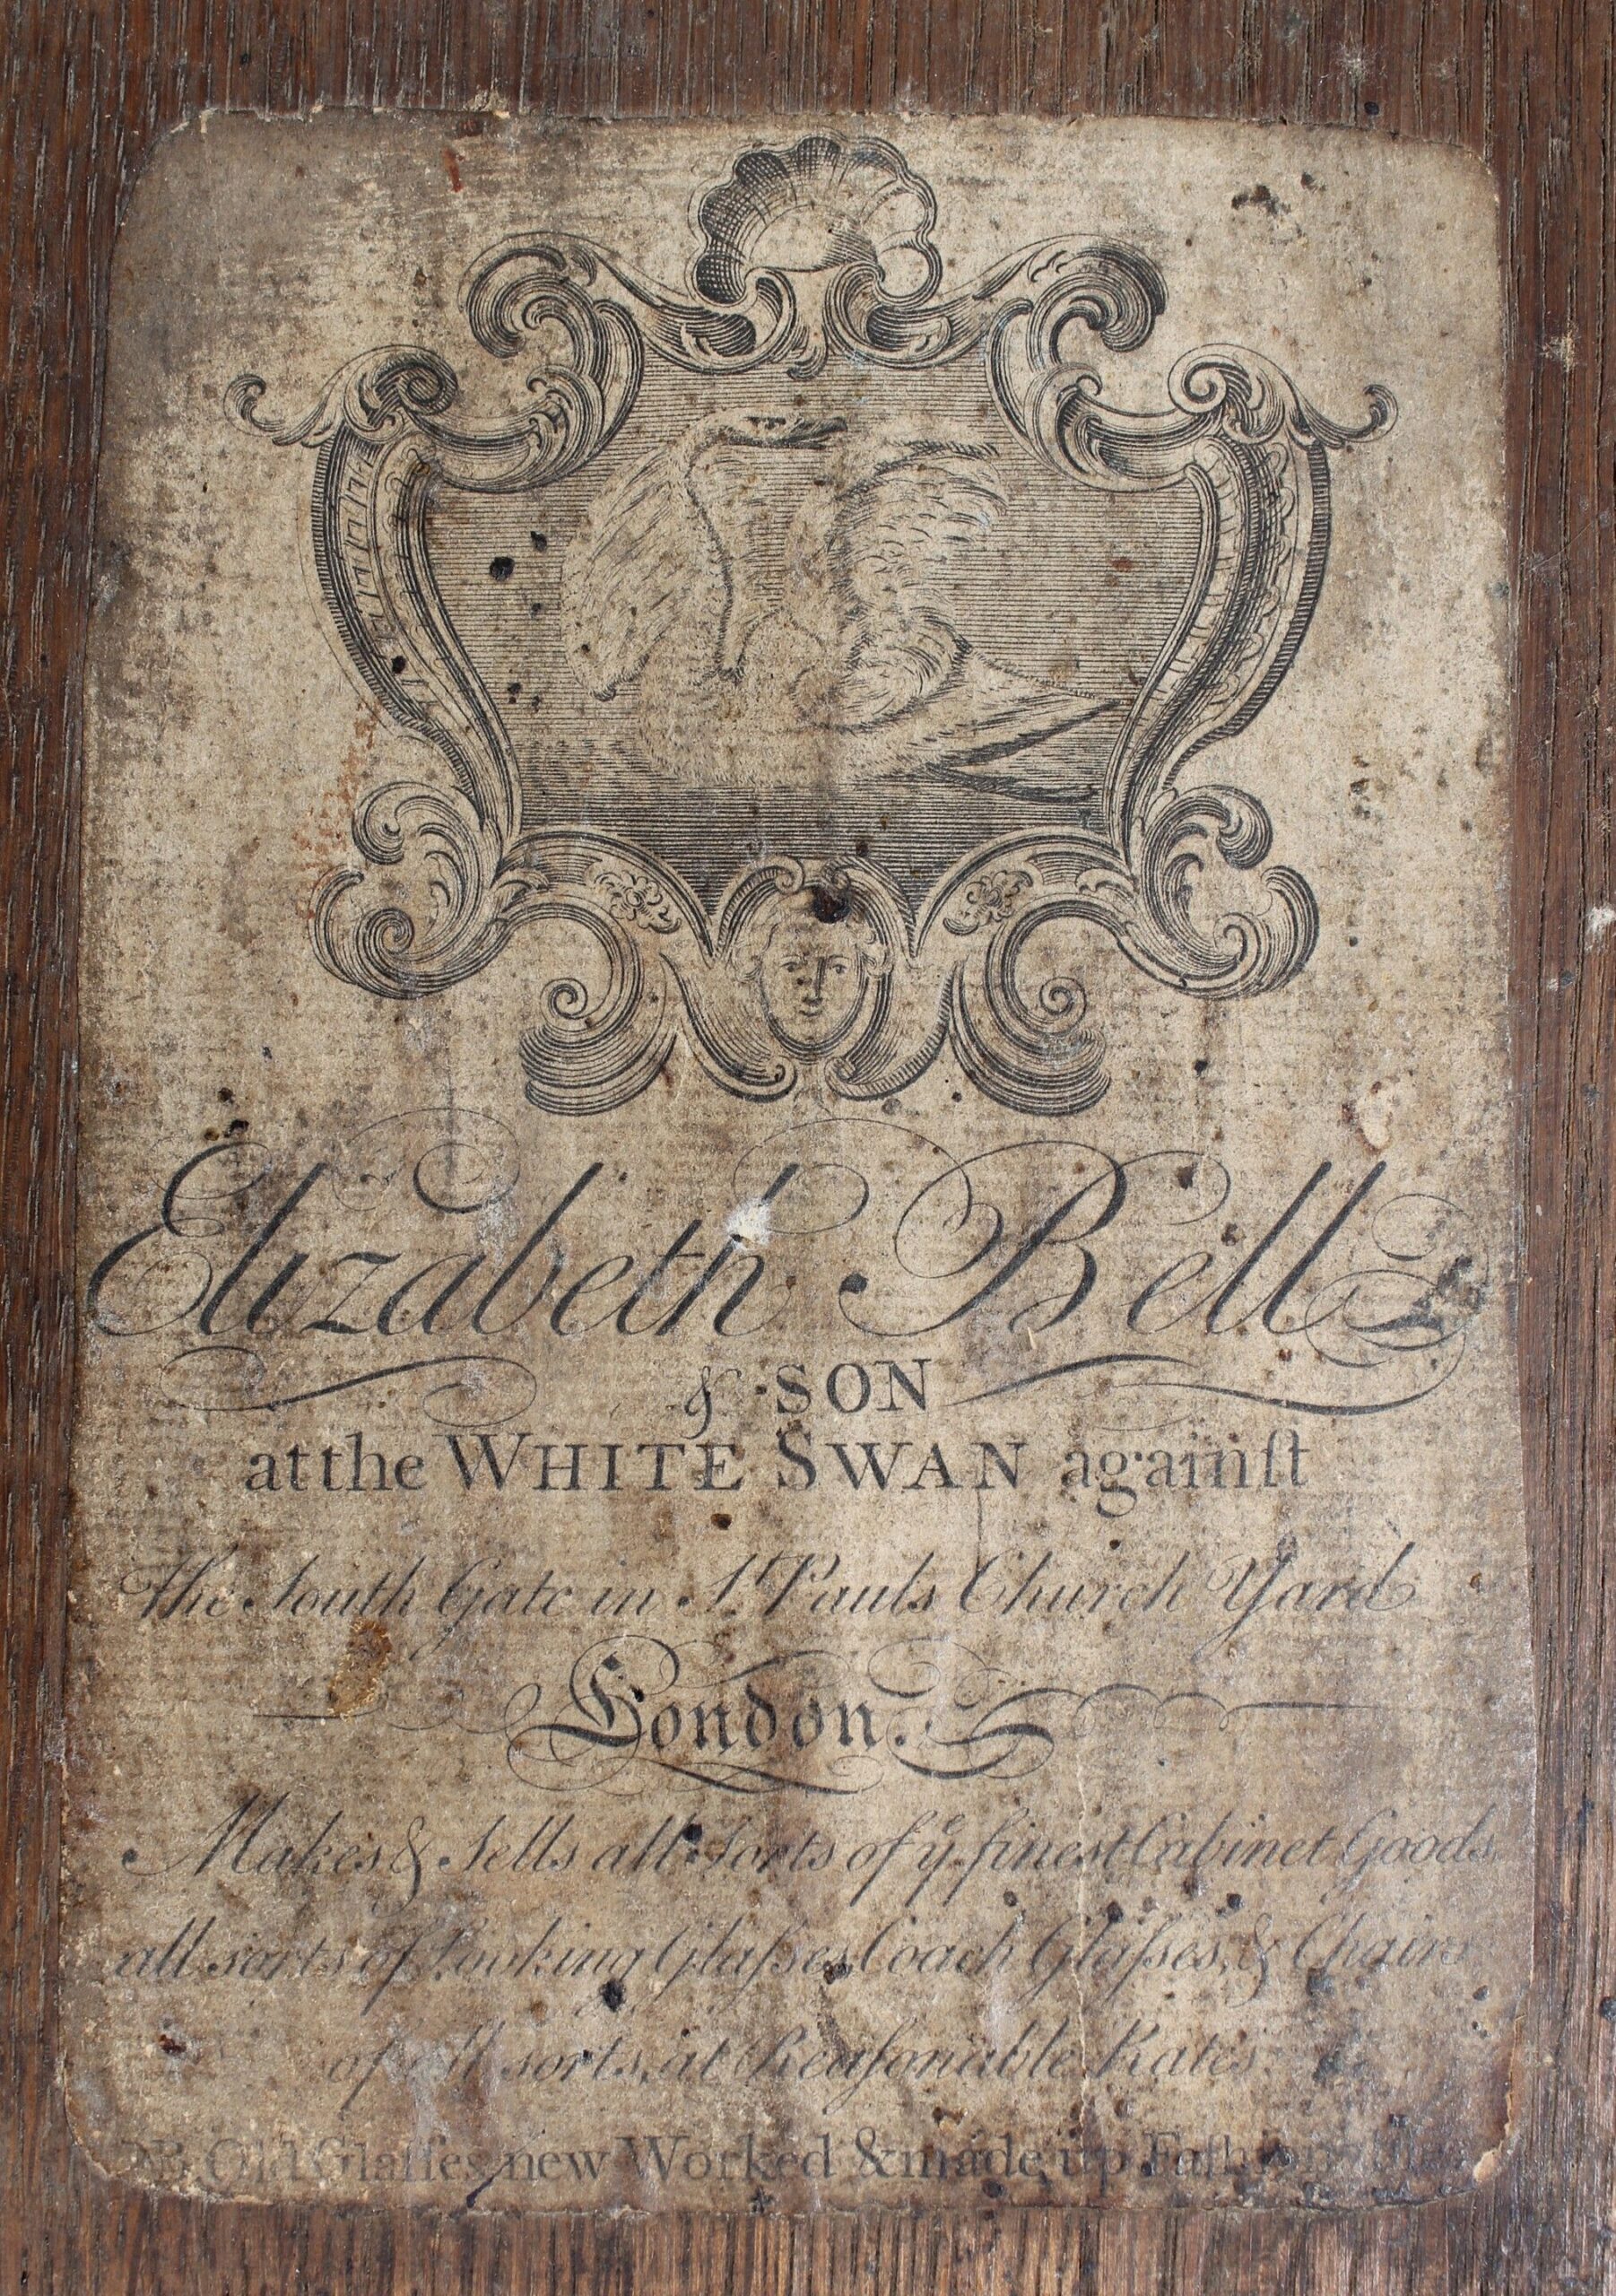 Elizabeth Bell
& SON
at the WHITE SWAN againſt
the South Gate in St. Pauls Church Yard
London.
Makes & Sells all Sorts of ye. finest Cabinet Goods
all sorts of Looking Glaſses, Coach Glaſses, & Chairs
of all sorts, at Reaſonable Rates
NB. Old Glaſſes new Worked & made up Faſhionable